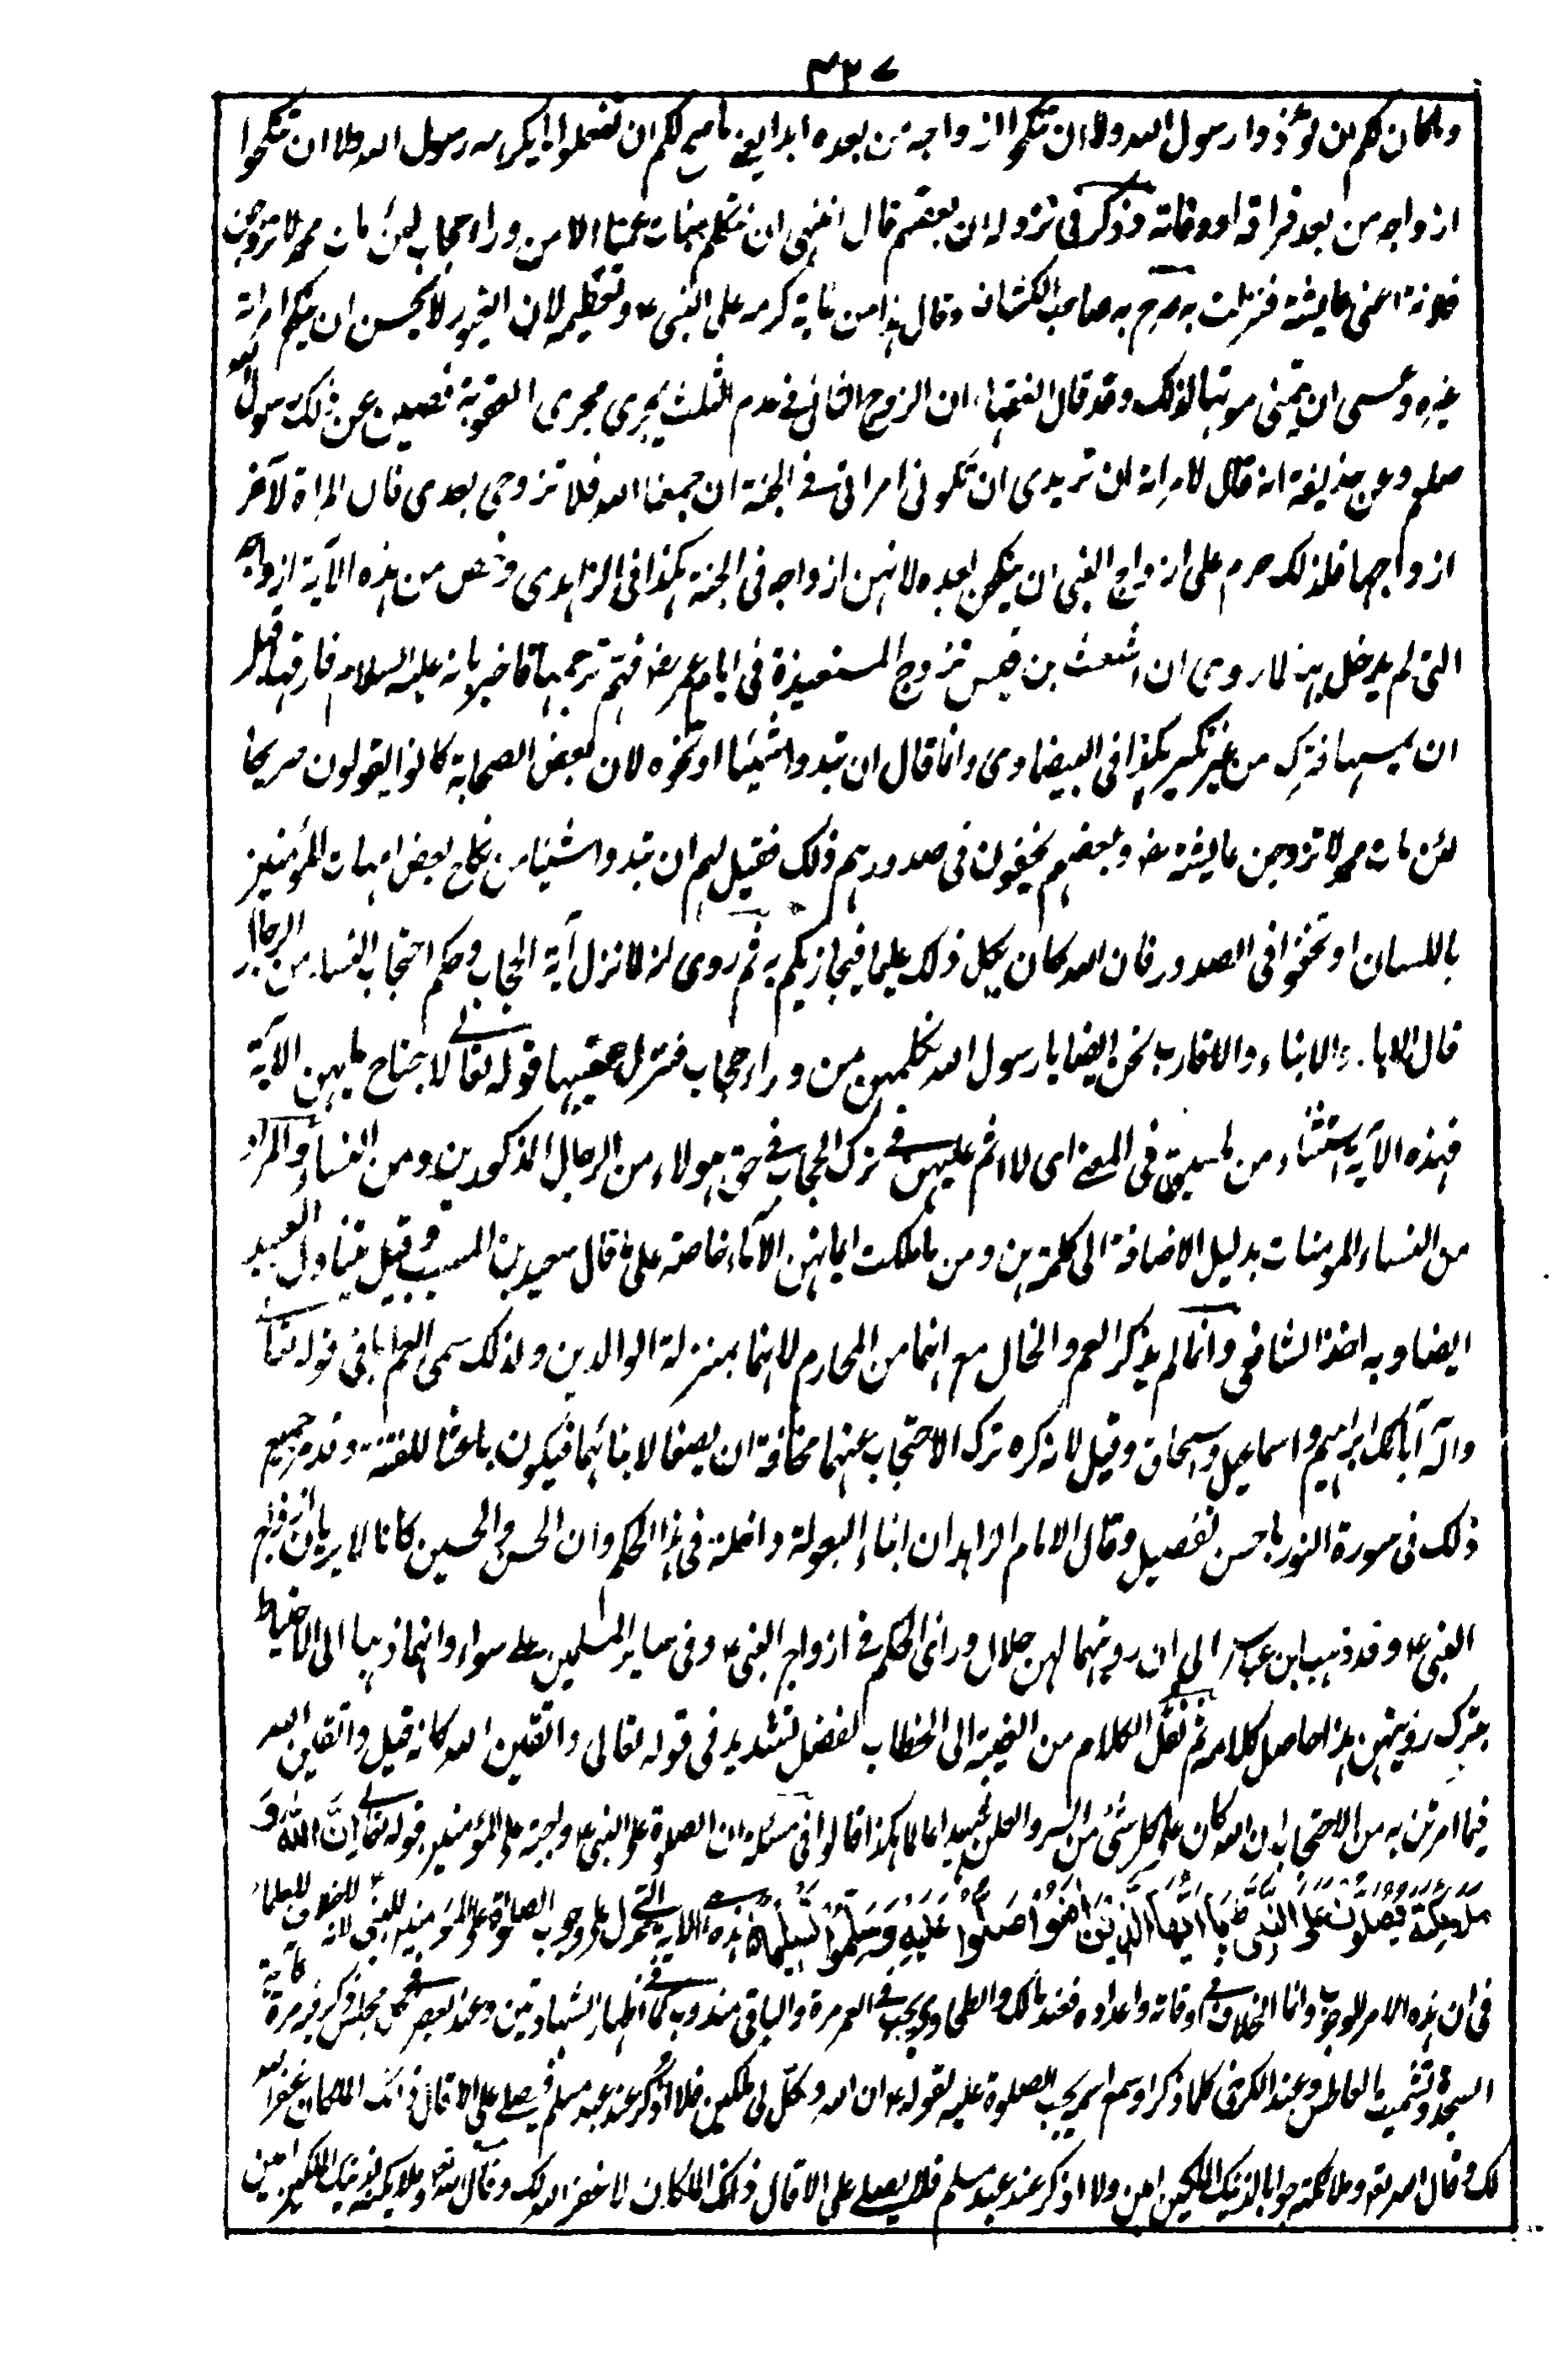 ٣٢٧
وما كان لكم ان تؤذوا رسول الله ولا ان تنكحوا ازواجه من بعده ابدا يعنى ما صح لكم ان تفعلوا ما يكرهه رسول الله ولا ان تنكحوا
ازواجه من بعد فراقه او وفاته وذكر فى نزوله ان بعضهم قال اننهى ان نتكلم بنات عمنا الا من وراء حجاب لئن مات محمد لاتزوجن
فلانة اعنى عايشة فنزلت به صرح به صاحب الكشاف وقال هذا من غاية كرمه على النبى ع وتعظيمه لان الغيور لا يحسن ان ينكح امرأته
غيره وعسى ان يتمنى موتها لذلك وقد قال الفقهاء ان الزوج الثانى فى هدم الثلث يجرى مجرى العقوبة فصين عن ذلك رسول الله
صلعم وعن حذيفة انه قال لامرأته ان تريدى ان تكونى امرأتى فى الجنة ان جمعنا الله فلا تزوجى بعدى فان المرأة لآخر
ازواجها فلذلك حرم على ازواج النبى ان ينكحن بعده لانهن ازواجه فى الجنة هكذا فى الزاهدى وخص من هذه الآية ازواجه
التى لم يدخل بهن لما روى ان اشعث بن قيس تزوج المستعيذة فى ايام عمر رض فهم برجمهما فاخبر بانه عليه السلام فارقها قبل
ان يمسها فترك من غير نكير هكذا فى البيضاوى وانما قال ان تبدوا شيئا او تخفوه لان بعض الصحابة كانوا يقولون صريحا
لئن مات محمد لاتزوجن عايشة رض وبعضهم يخفون فى صدورهم ذلك فقيل لهم ان تبدوا شيئا من نكاح بعض امهات المؤمنين
باللسان او تخفوا فى الصدور فان الله كان بكل ذلك عليما فيجازيكم به ثم روى انه لما نزل آية الحجاب وحكم احتجاب النساء من الرجال
قال الاباء والابناء والاقارب نحن ايضا يا رسول الله نكلمهن من وراء حجاب فنزل عقيبها قوله تعالى لا جناح عليهن الآية
فهذه الآية استثناء من لما سبق فى المعنى اى لا اثم عليهن فى ترك الحجاب فى حق هولاء من الرجال المذكورين ومن النساء والمراد
من النساء المومنات بدليل الاضافة الى كلمة هن ومن ما ملكت ايمانهن الآماء خاصة على ما قال سعيد بن المسيب وقيل يتناول العبيد
ايضا وبه اخذ الشافعى وانما لم يذكر العم والخال مع انهما من المحارم لانهما بمنزلة الوالدين ولذلك سمى العم ابا فى قوله تعالى
واله آبائك ابراهيم واسماعيل واسحاق وقيل لانه كره ترك الاحتجاب عنهما مخافة ان يصفا لابنائهما فيكون باعثا للفتنة وقد مر جميع
ذلك فى سورة النور باحسن تفصيل وقال الامام الزاهد ان ابناء البعولة داخلة فى هذا الحكم وان الحسن والحسين كانا لا يريان ازواج
النبى ع وقد ذهب ابن عباس الى ان رويتهما لهن حلال وراى الحكم فى ازواج النبى ع وفى ساير المسلمين على سواء وانهما ذهبا الى الاحتياط
بترك رويتهن هذا حاصل كلامه ثم نقل الكلام من الغيبة الى الخطاب لفضل تشديد فى قوله تعالى واتقين الله كانه قيل واتقين الله
فيما امرتن به من الاحتجاب ان الله كان على كل شئ من السر والعلن شهيدا عالما هكذا قالوا فى مسئلة ان الصلوة على النبى ع واجبة على المؤمنين قوله تعالى اِنَّ اللّٰهَ وَ
مَلٰٓئِكَتَهٗ يُصَلُّوْنَ عَلَى النَّبِىِّ يٰٓاَيُّهَا الَّذِيْنَ اٰمَنُوْا صَلُّوْا عَلَيْهِ وَسَلِّمُوْا تَسْلِيْمًا هذه الآية هى التى تدل على وجوب الصلوة على المؤمنين للنبى لانه لا خلاف للعلماء
فى ان هذه الامر للوجوب وانما الخلاف فى اوقاته واعداده فعند مالك والطحاوى يجب فى العمر مرة والباقى مندوب كما فى اظهار الشهادتين وعند البعض فى كل مجلس ذكر فيه مرة كآية
السجدة وتشميت العاطس وعند الكرخى كلما ذكر او سمع اسمه يجب الصلوة عليه لقوله ع ان الله وكل لى ملكين فلا اذكر عند عبد مسلم فيصلى على الا قال ذانك الملكان غفر الله
لك وقال الله تعه وملائكته جوابا لذينك الملكين امين ولا اذكر عند عبد مسلم فلا يصلى على الا قال ذانك الملكان لا غفر الله لك وقال الله تعه وملائكته لذينك الملكين امين